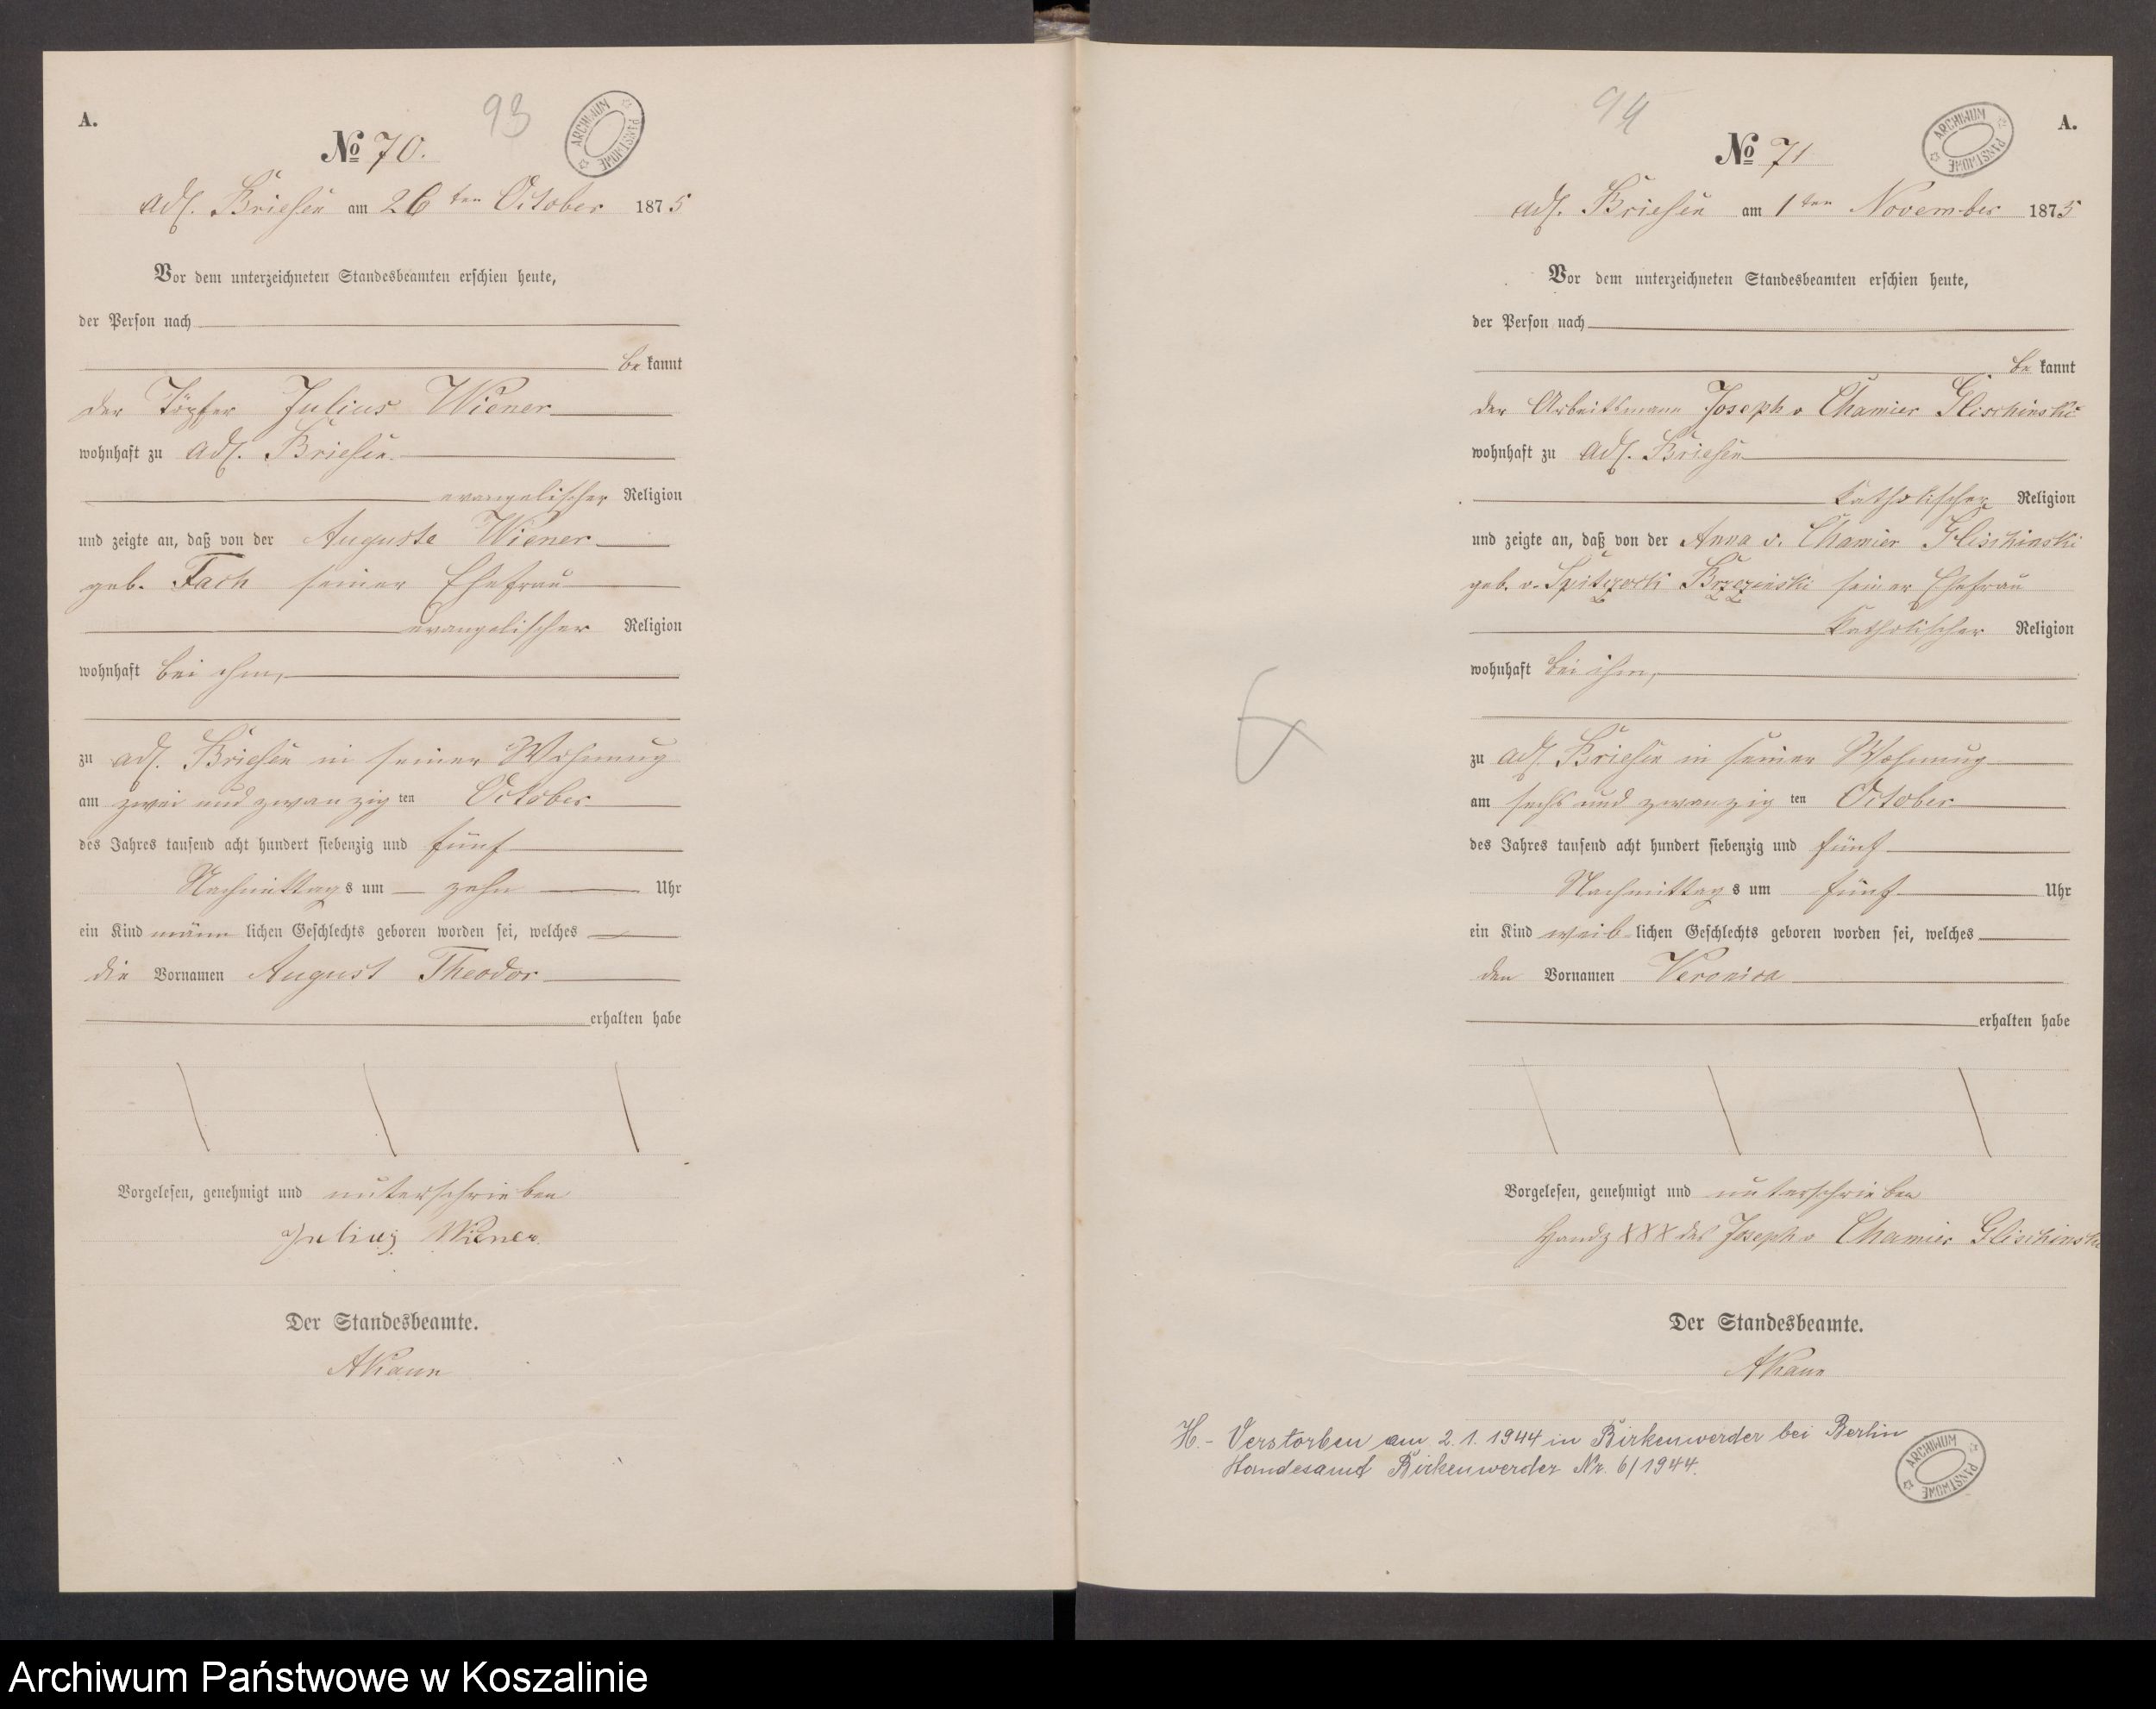 93
A.
No 70.
ARCHIWUM PAŃSTWOWE
adl. Briesen am 26 ten October 1875
Vor dem unterzeichneten Standesbeamten erschien heute,
der Person nach
be kannt
der Töpfer Julius Wiener
wohnhaft zu adl. Briesen
evangelischer Religion
und zeigte an, daß von der Auguste Wiener
geb. Fach seiner Ehefrau
evangelischer Religion
wohnhaft bei ihm,
zu adl. Briesen in seiner Wohnung
am zwei und zwanzig ten October
des Jahres tausend acht hundert siebenzig und fünf
Nachmittags um zehn Uhr
ein Kind männ lichen Geschlechts geboren worden sei, welches
die Vornamen August Theodor
erhalten habe
Vorgelesen, genehmigt und unterschrieben
Julius Wiener
Der Standesbeamte.
94
A.
No 71
ARCHIWUM PAŃSTWOWE
adl. Briesen am 1 ten November 1875
Vor dem unterzeichneten Standesbeamten erschien heute,
der Person nach
be kannt
der Arbeitsmann Joseph v Chamier Glischinski
wohnhaft zu adl. Briesen
katholischer Religion
und zeigte an, daß von der Anna v. Chamier Glischinski
geb. v. Spitzock Brzezinski seiner Ehefrau
katholischer Religion
wohnhaft bei ihm,
zu adl. Briesen in seiner Wohnung
am sechs und zwanzig ten October
des Jahres tausend acht hundert siebenzig und fünf
Nachmittags um fünf Uhr
ein Kind weib lichen Geschlechts geboren worden sei, welches
den Vornamen Veronica
erhalten habe
Vorgelesen, genehmigt und unterschrieben
Handz XXX des Joseph v Chamier Glischinski
Der Standesbeamte.
H. - Verstorben am 2.1.1944 in Birkenwerder bei Berlin
Standesamt Birkenwerder Nr. 6/1944.
ARCHIWUM PAŃSTWOWE
Archiwum Państwowe w Koszalinie